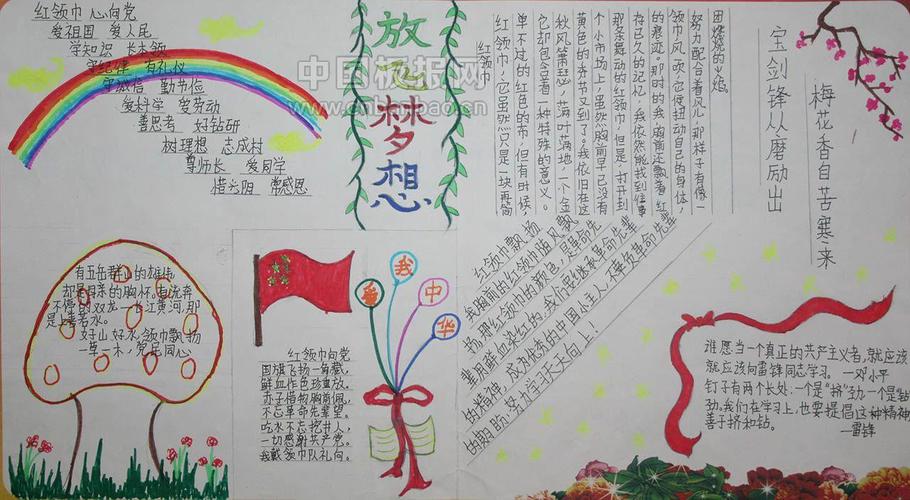 红领巾 心向党
爱祖国 爱人民
学知识 长本领
守纪律 有礼仪
守诚信 勤节俭
爱科学 爱劳动
善思考 好钻研
树理想 志成材
尊师长 爱同学
惜光阴 常感恩
放飞梦想
中国板报网
www.cnbanbao.cn
红领巾
红领巾,它虽然只是一块再简
单不过的红色的布,但有时候,
它却包含着一种特殊的意义。
秋风萧瑟,落叶满地,一个金
黄色的季节又到了。我依旧在这
个小市场上,虽然胸前早已没有
那条舞动的红领巾,但是,打开
存已久的记忆,我依然能找到往事
的痕迹。那时的我,胸前还飘着红
领巾,风一吹,它便扭动自己的身体,
努力配合着风儿,那样子有像一
团燃烧的火焰。
宝剑锋从磨励出
梅花香自苦寒来
有五岳群山的雄伟
却是母亲的胸怀。有流奔
不停的双龙—长江黄河,那
是上善若水。
好山好水,领巾飘扬
一草一木,党民同心
红领巾向党
国旗飞扬一角藏,
鲜血作色珍重放。
赤子惜物胸前佩,
不忘革命先辈望。
吃水不忘挖井人,
一切感谢共产党。
我戴领巾队礼向。
爱我中华
红领巾飘扬
我胸前的红领巾随风飘
扬,那红领巾的颜色,是革命先
辈用鲜血染红的,我们要继承革命先辈
的精神,成为优秀的中国小主人,不辜负革命先辈
的期盼,努力学习天天向上!
谁愿当一个真正的共产主义者,就应该
就应该向雷锋同志学习。 —邓小平
钉子有两个长处:一个是“挤”劲,一个是“钻”
劲。我们在学习上,也要提倡这种精神
善于挤和钻。
—雷锋